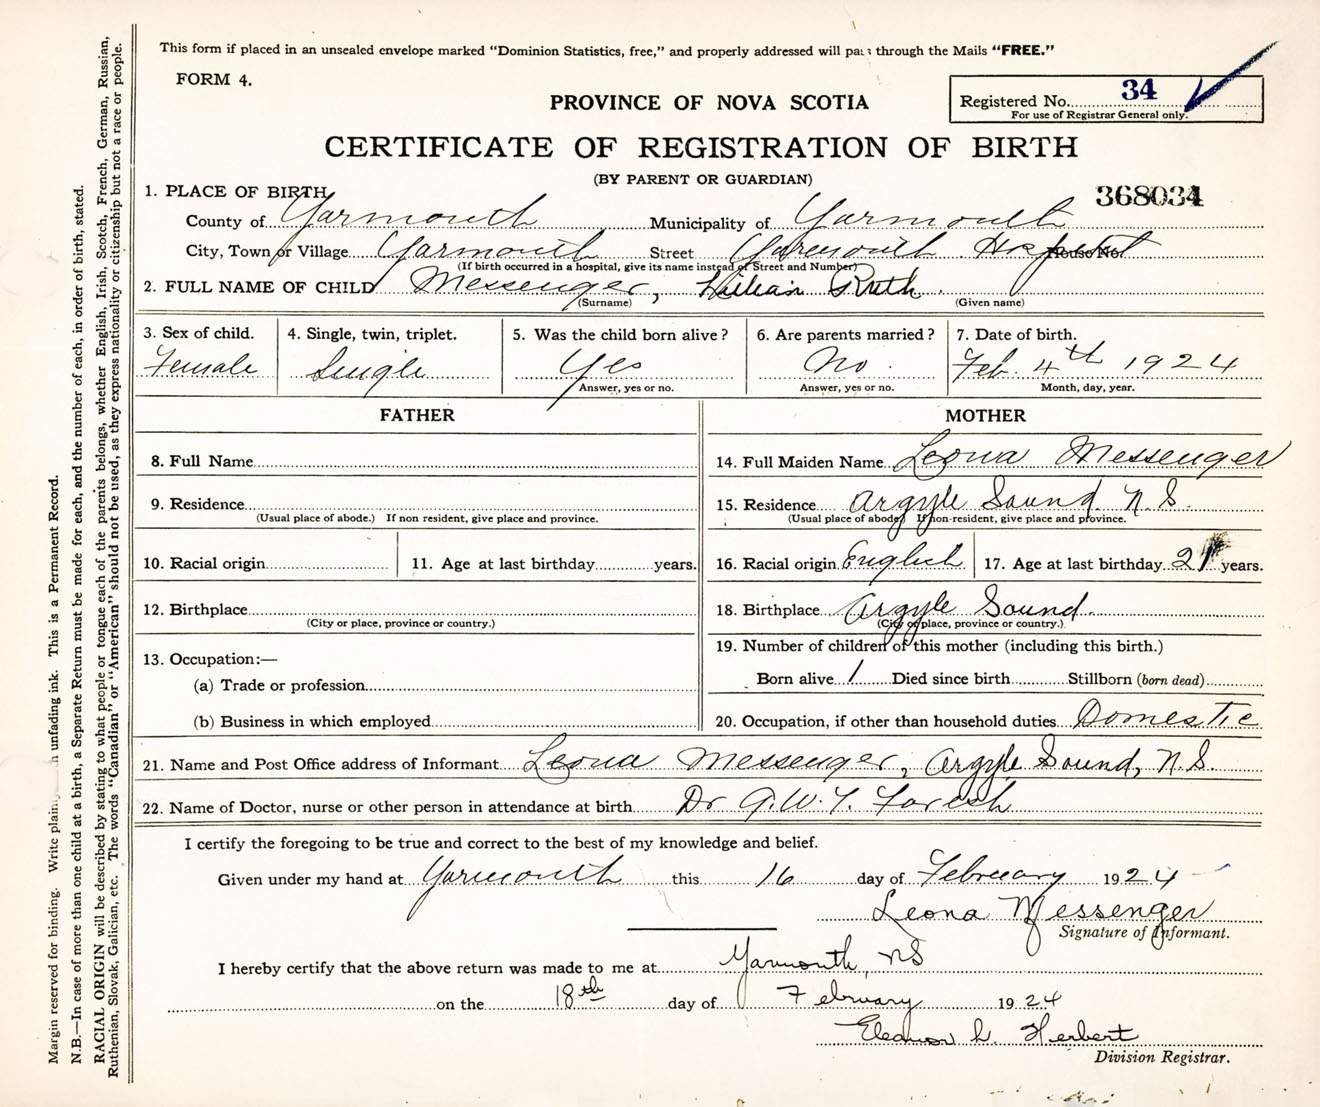 This form if placed in an unsealed envelope marked "Dominion Statistics, free," and properly addressed will pass through the Mails "FREE."
FORM 4.
PROVINCE OF NOVA SCOTIA
Registered No. 34
For use of Registrar General only.
CERTIFICATE OF REGISTRATION OF BIRTH
(BY PARENT OR GUARDIAN)
368034
1. PLACE OF BIRTH
County of Yarmouth Municipality of Yarmouth
City, Town or Village Yarmouth Street Yarmouth Hospital House No.
(If birth occurred in a hospital, give its name instead of Street and Number)
2. FULL NAME OF CHILD Messenger, Lilian Ruth.
(Surname) (Given name)
3. Sex of child. 4. Single, twin, triplet. 5. Was the child born alive? 6. Are parents married? 7. Date of birth.
Female Single Yes No. Feb. 4th 1924
Answer, yes or no. Answer, yes or no. Month, day, year.
FATHER MOTHER
8. Full Name 14. Full Maiden Name Leona Messenger
9. Residence 15. Residence Argyle Sound. N.S.
(Usual place of abode.) If non resident, give place and province. (Usual place of abode) If non-resident, give place and province.
10. Racial origin 11. Age at last birthday years. 16. Racial origin English 17. Age at last birthday 21 years.
12. Birthplace 18. Birthplace Argyle Sound.
(City or place, province or country.) (City or place, province or country.)
13. Occupation:— 19. Number of children of this mother (including this birth.)
(a) Trade or profession Born alive 1 Died since birth Stillborn (born dead)
(b) Business in which employed 20. Occupation, if other than household duties Domestic
21. Name and Post Office address of Informant Leona Messenger, Argyle Sound, N.S.
22. Name of Doctor, nurse or other person in attendance at birth Dr G.W.T. Farish
I certify the foregoing to be true and correct to the best of my knowledge and belief.
Given under my hand at Yarmouth this 16 day of February 1924
Leona Messenger
Signature of Informant.
I hereby certify that the above return was made to me at Yarmouth, NS
on the 18th day of February 1924
Eleanor L. Herbert
Division Registrar.
Margin reserved for binding. Write plainly unfading ink. This is a Permanent Record.
N.B.—In case of more than one child at a birth, a Separate Return must be made for each, and the number of each, in order of birth, stated.
RACIAL ORIGIN will be described by stating to what people or tongue each of the parents belongs, whether English, Irish, Scotch, French, German, Russian,
Ruthenian, Slovak, Galician, etc. The words "Canadian" or "American" should not be used, as they express nationality or citizenship but not a race or people.